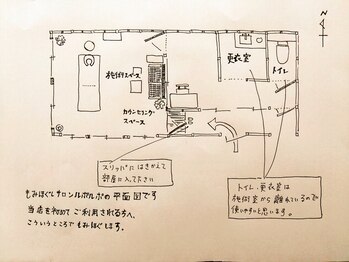 N
更衣室
トイレ
施術スペース
カウンセリング
スペース
スリッパにはきかえて
部屋に入って下さい
トイレ・更衣室は
施術室から離れているので
使いやすいと思います。
もみほぐしサロンルポルポの平面図です
当店を初めてご利用される方へ、
こういうところでもみほぐします。